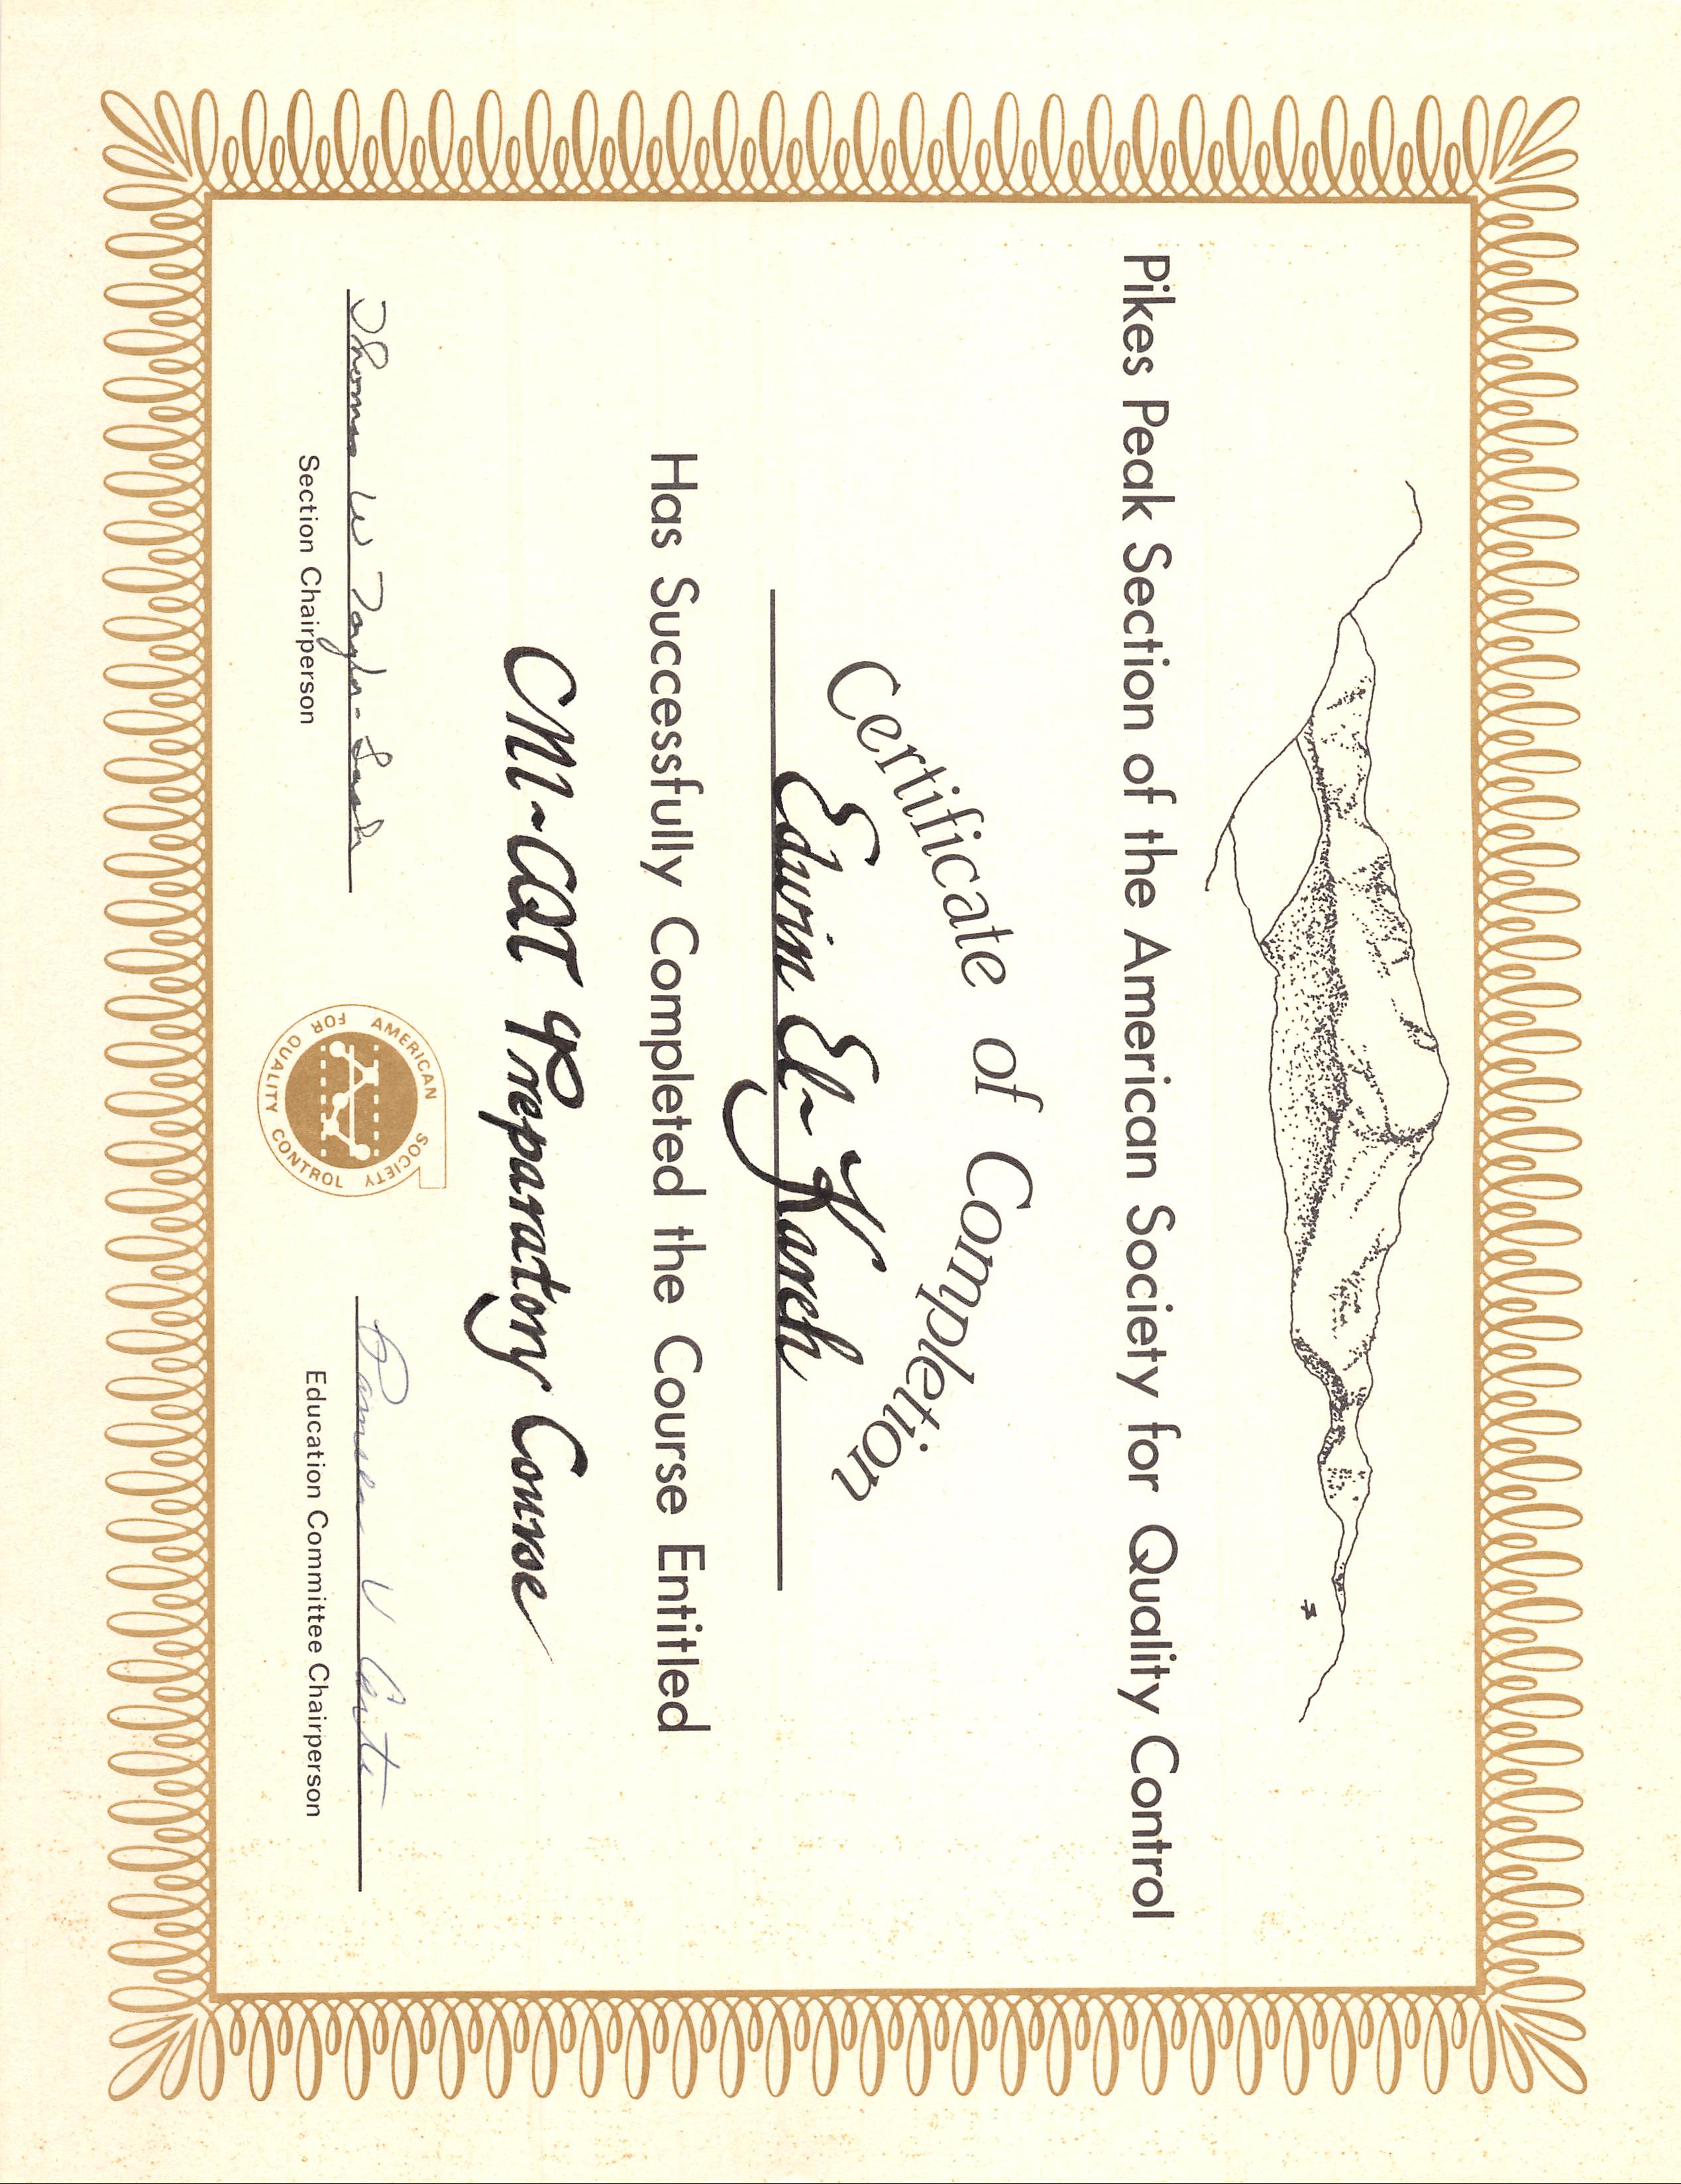 Pikes Peak Section of the American Society for Quality Control
Certificate of Completion
Edwin El-Kareh
Has Successfully Completed the Course Entitled
CMI-CQT Preparatory Course
Thomas W Taylor-
Section Chairperson
AMERICAN SOCIETY FOR QUALITY CONTROL
Education Committee Chairperson